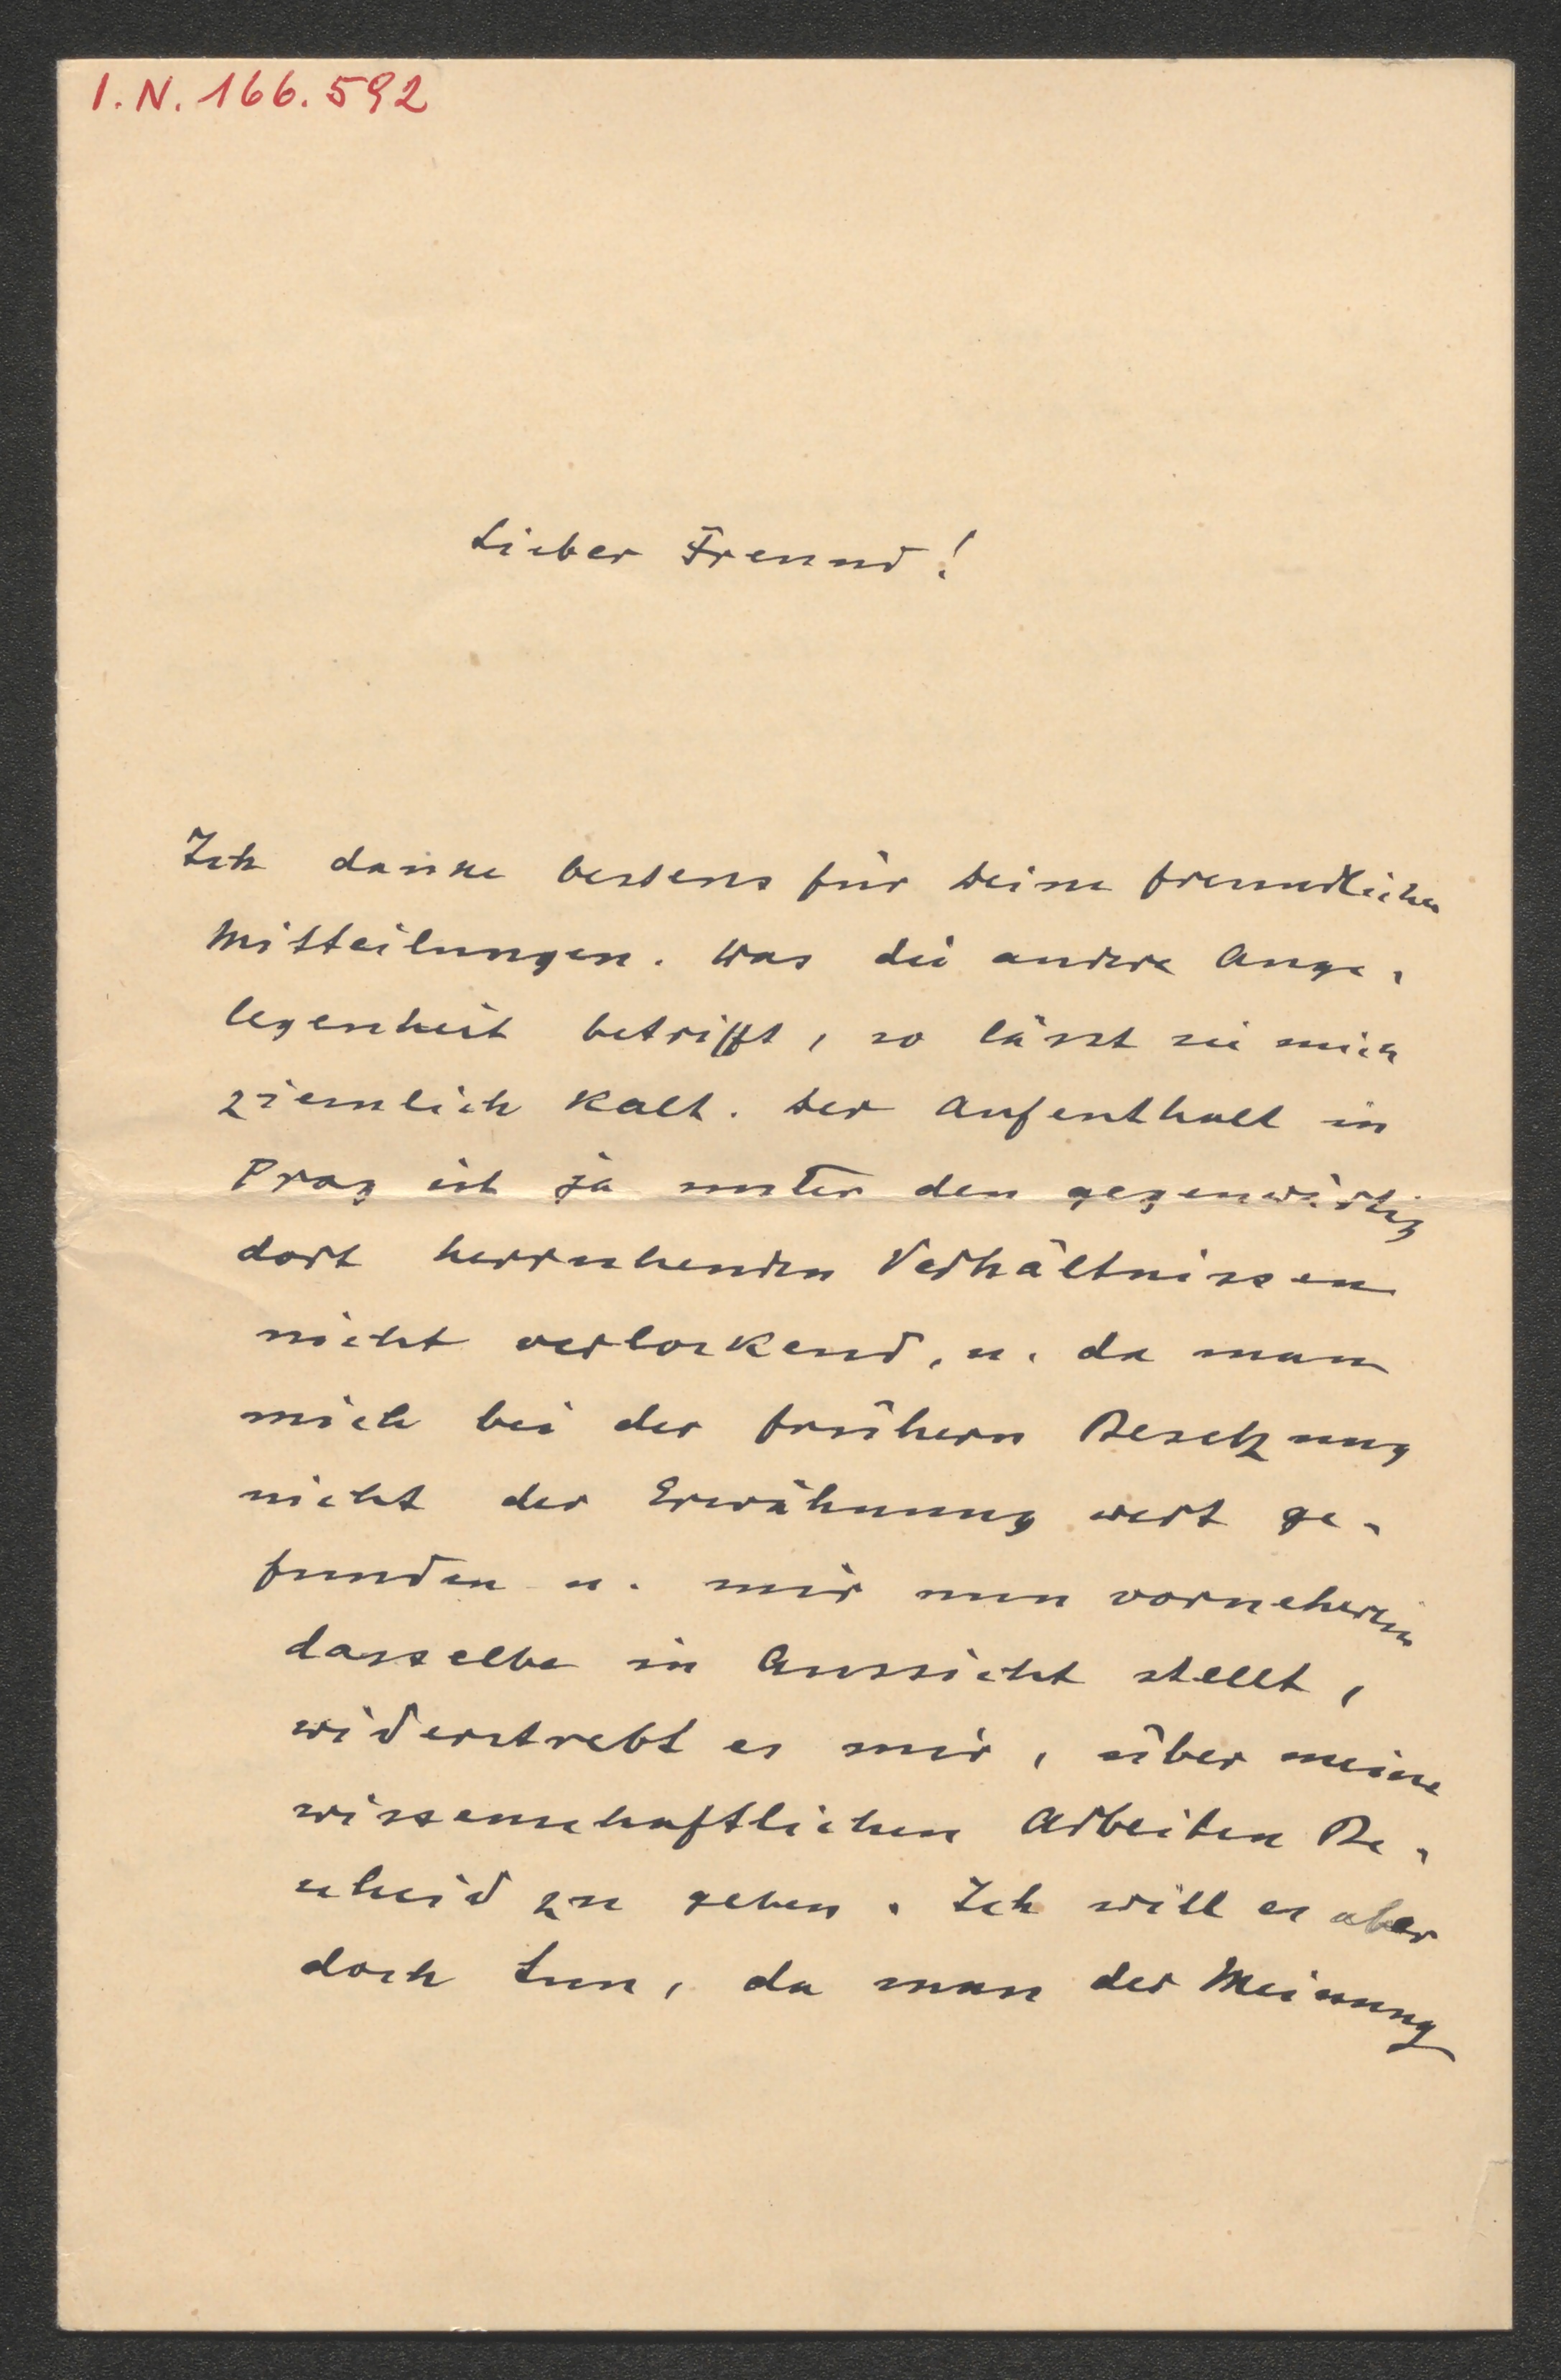 I.N. 166.592
Lieber Freund!
Ich danke bestens für Deine freundlichen
Mitteilungen. Was die andere Ange-
legenheit betrifft, so lässt sie mich
ziemlich kalt. Der Aufenthalt in
Prag ist ja unter den gegenwärtig
dort herrschenden Verhältnissen
nicht verlockend, u. da man
mich bei der frühern Besetzung
nicht der Erwähnung wert ge-
funden u. mir nun vorneherein
dasselbe in Aussicht stellt,
widerstrebt es mir, über meine
wissenschaftlichen Arbeiten Be-
scheid zu geben. Ich will es aber
doch tun, da man der Meinung